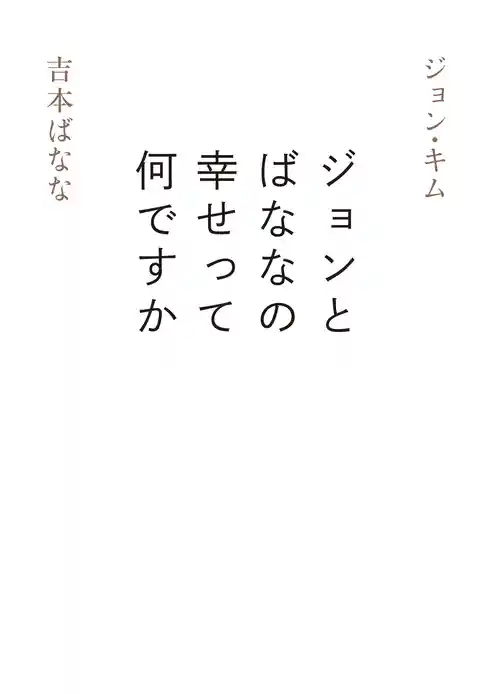 ジョン・キム
ジョンと
ばななの
幸せって
何ですか
吉本ばなな